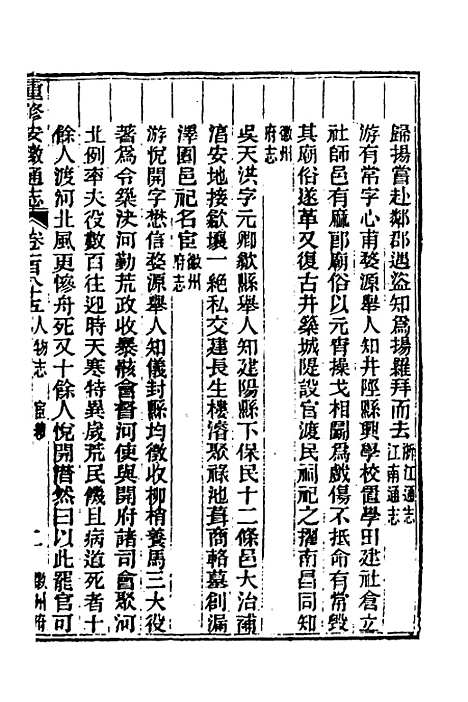 歸揚嘗赴鄰郡遇盜知爲揚羅拜而去浙江通志江南通志
游有常字心甫婺源舉人知井陘縣興學校置學田建社倉立
社師邑有麻郎廟俗以元宵操戈相鬭爲戲傷不抵命有常毀
其廟俗遂革又復古井築城隄設官渡民祠祀之擢南昌同知
徽州府志
吳天洪字元卿歙縣舉人知建陽縣下保民十二條邑大治補
淯安地接歙壤一絕私交建長生樓濬聚祿池葺商輅墓創漏
澤園邑祀名宦徽州府志
游悅開字懋信婺源舉人知儀封縣均徵收柳梢養馬三大役
著爲令築決河勤荒政收暴骸會督河使與開府諸司會聚河
北例率夫役數百往迎時天寒特異歲荒民饑且病道死者十
餘人渡河北風更慘舟死又十餘人悅開潸然曰以此罷官可
重修安徽通志 卷一百八十五 人物志 宦績 二 徽州府